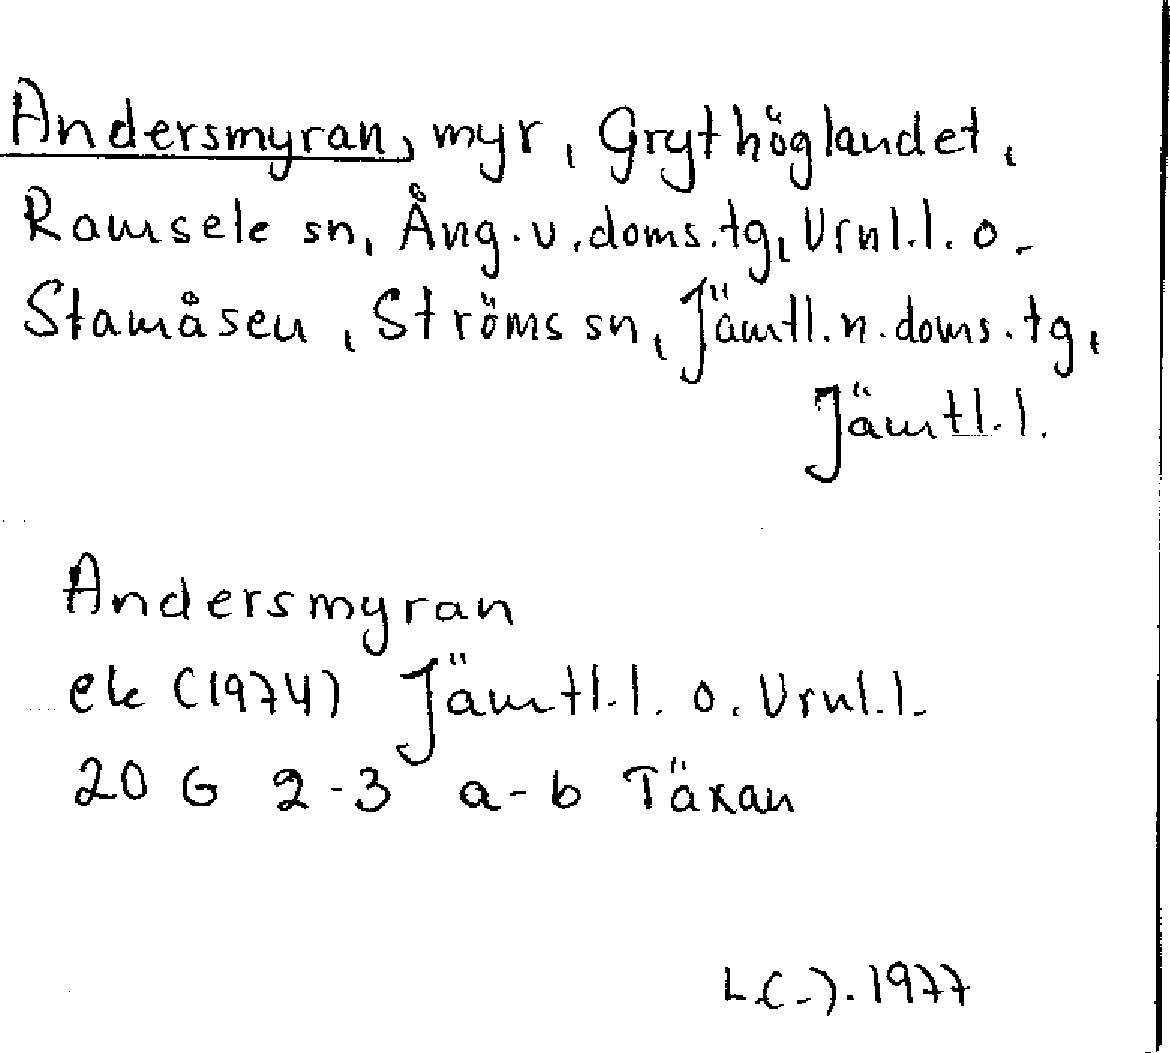 Andersmyran, myr, Grythöglandet,
Ramsele sn, Ång.v.doms.tg, Vrnl.l. o.
Stamåsen, Ströms sn, Jämtl.n.doms.tg,
Jämtl.l.
Andersmyran
ek (1974) Jämtl.l. o. Vrnl.l.
20 G 2-3 a-b Täxan
L.(-). 1977